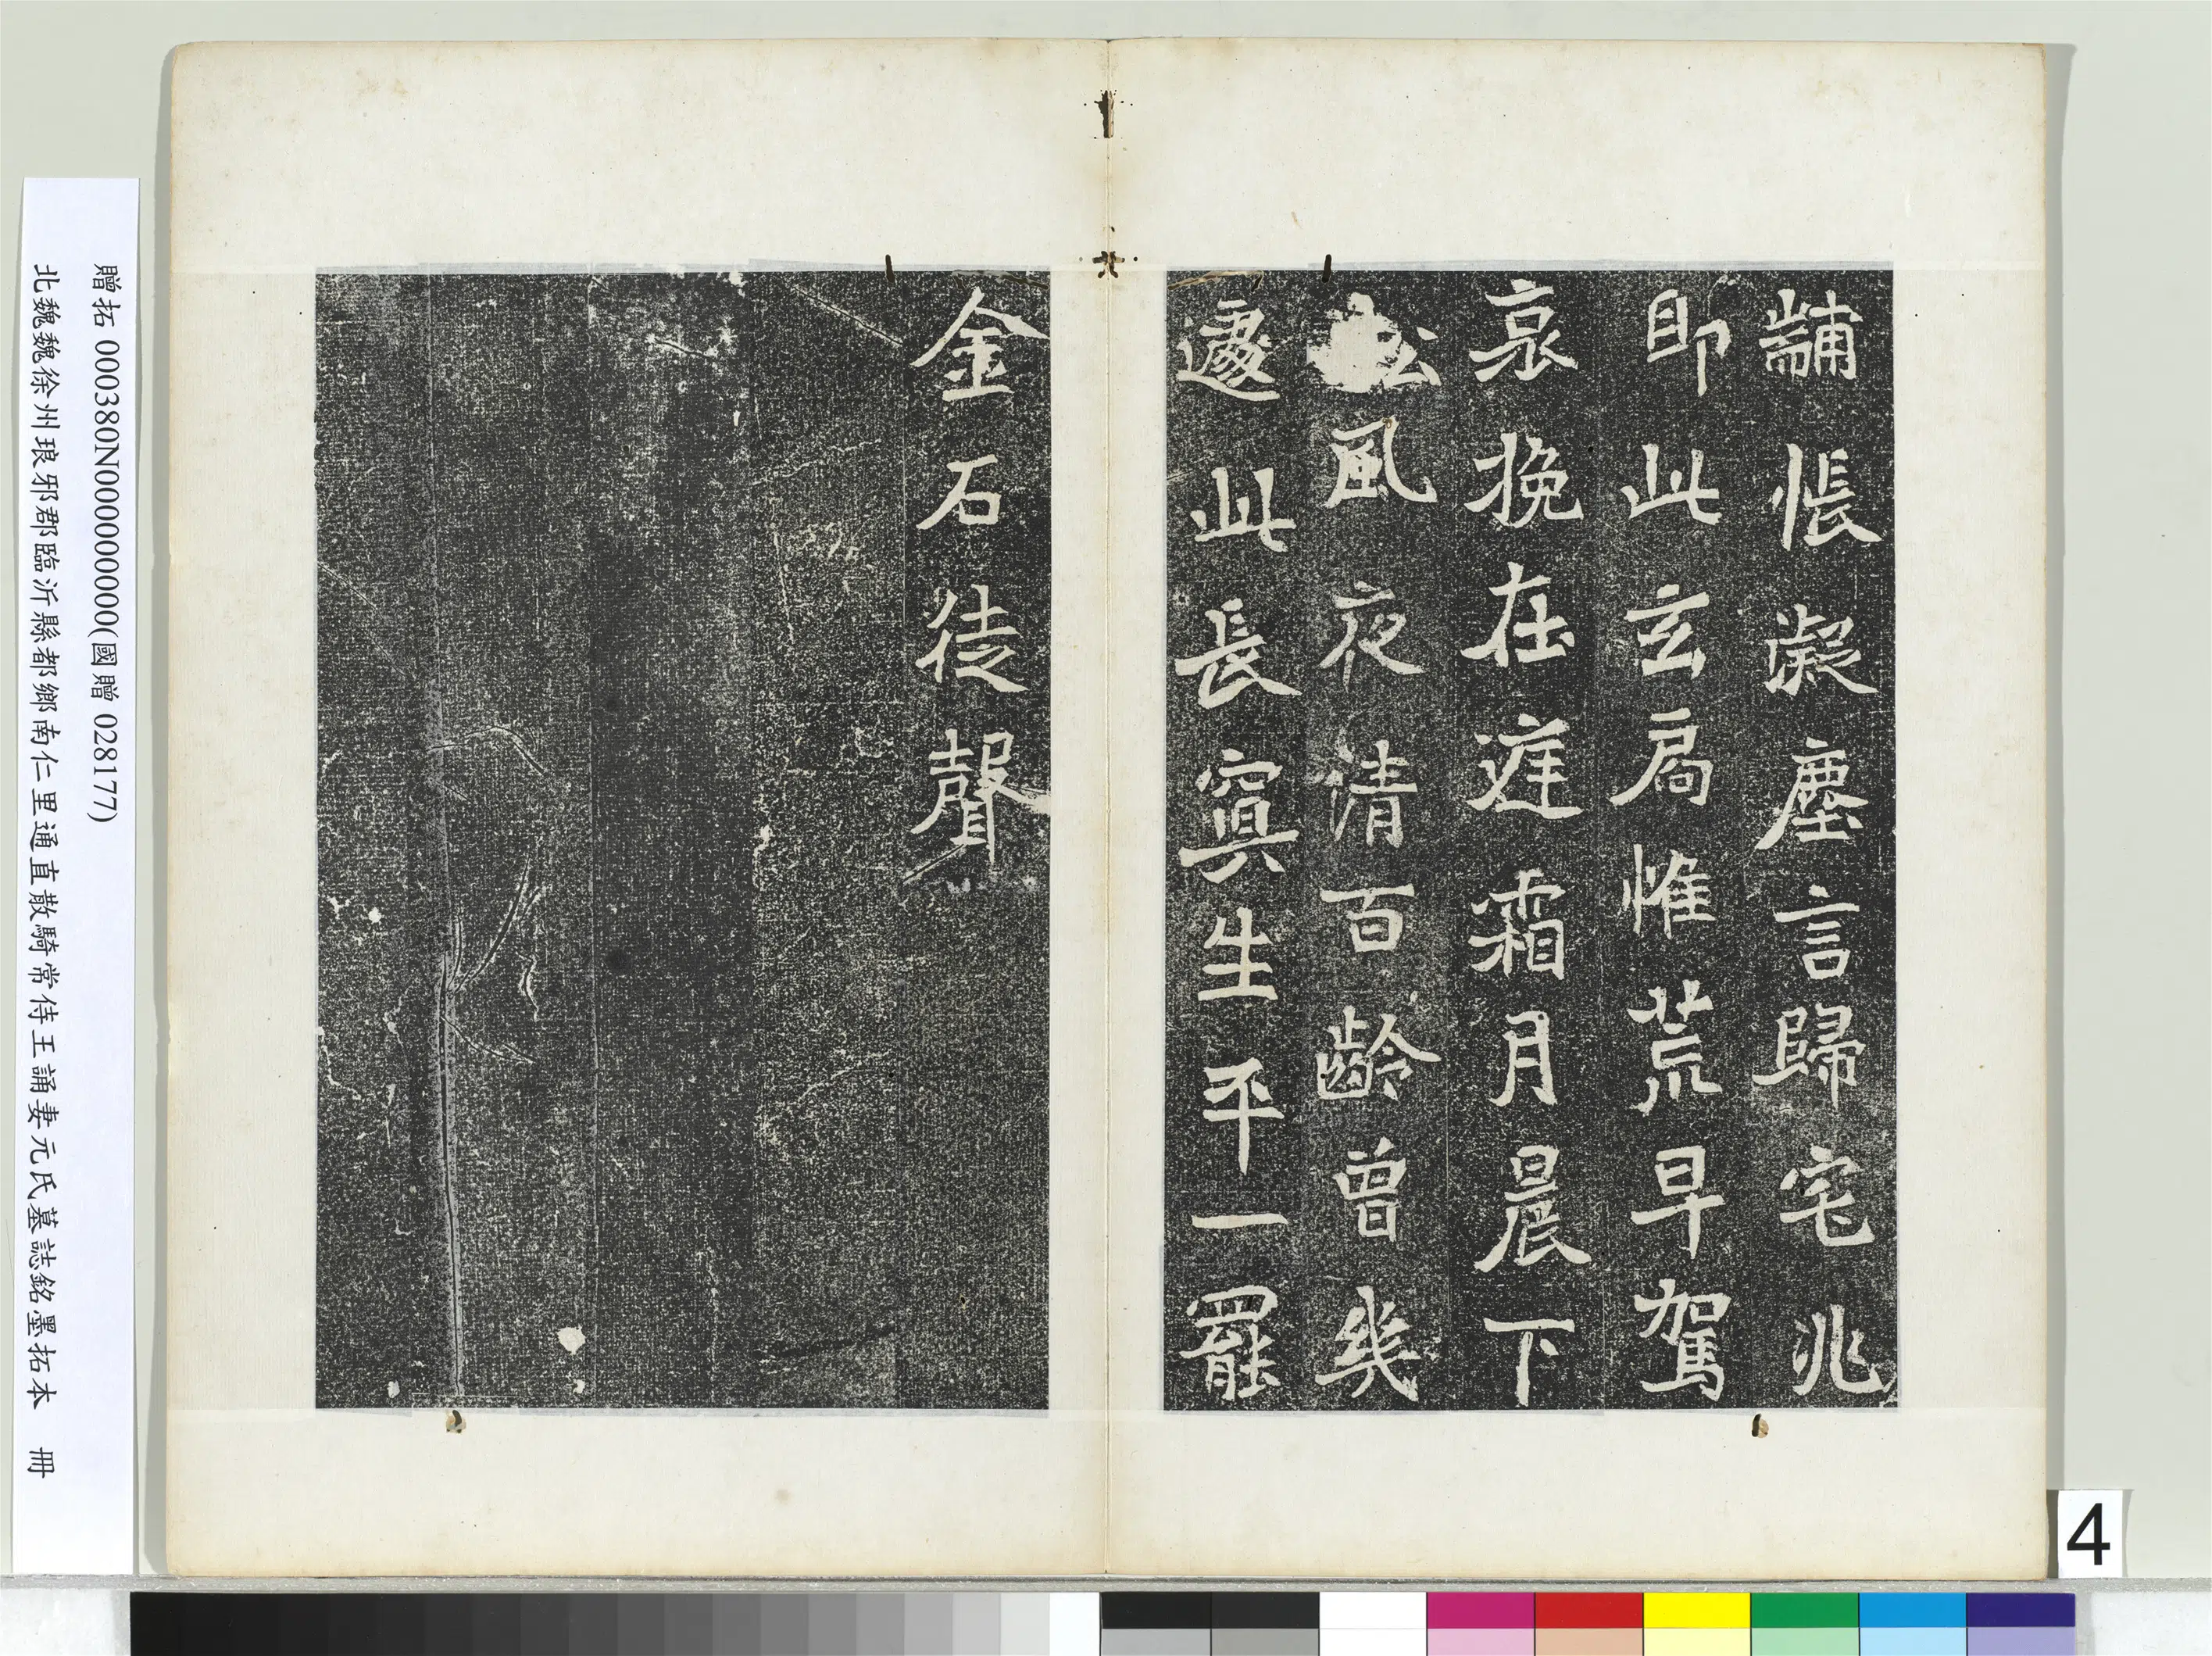 黼帳凝塵言歸宅兆
即此玄扃惟荒早駕
哀挽在逰霜月晨下
松風夜清百齡曾幾
邃此長寘生平一罷
金石徒聲
贈拓 000380N000000000(國贈 028177)
北魏魏徐州琅邪郡臨沂縣都鄉南仁里通直散騎常侍王誦妻元氏墓誌銘墨拓本 冊
4